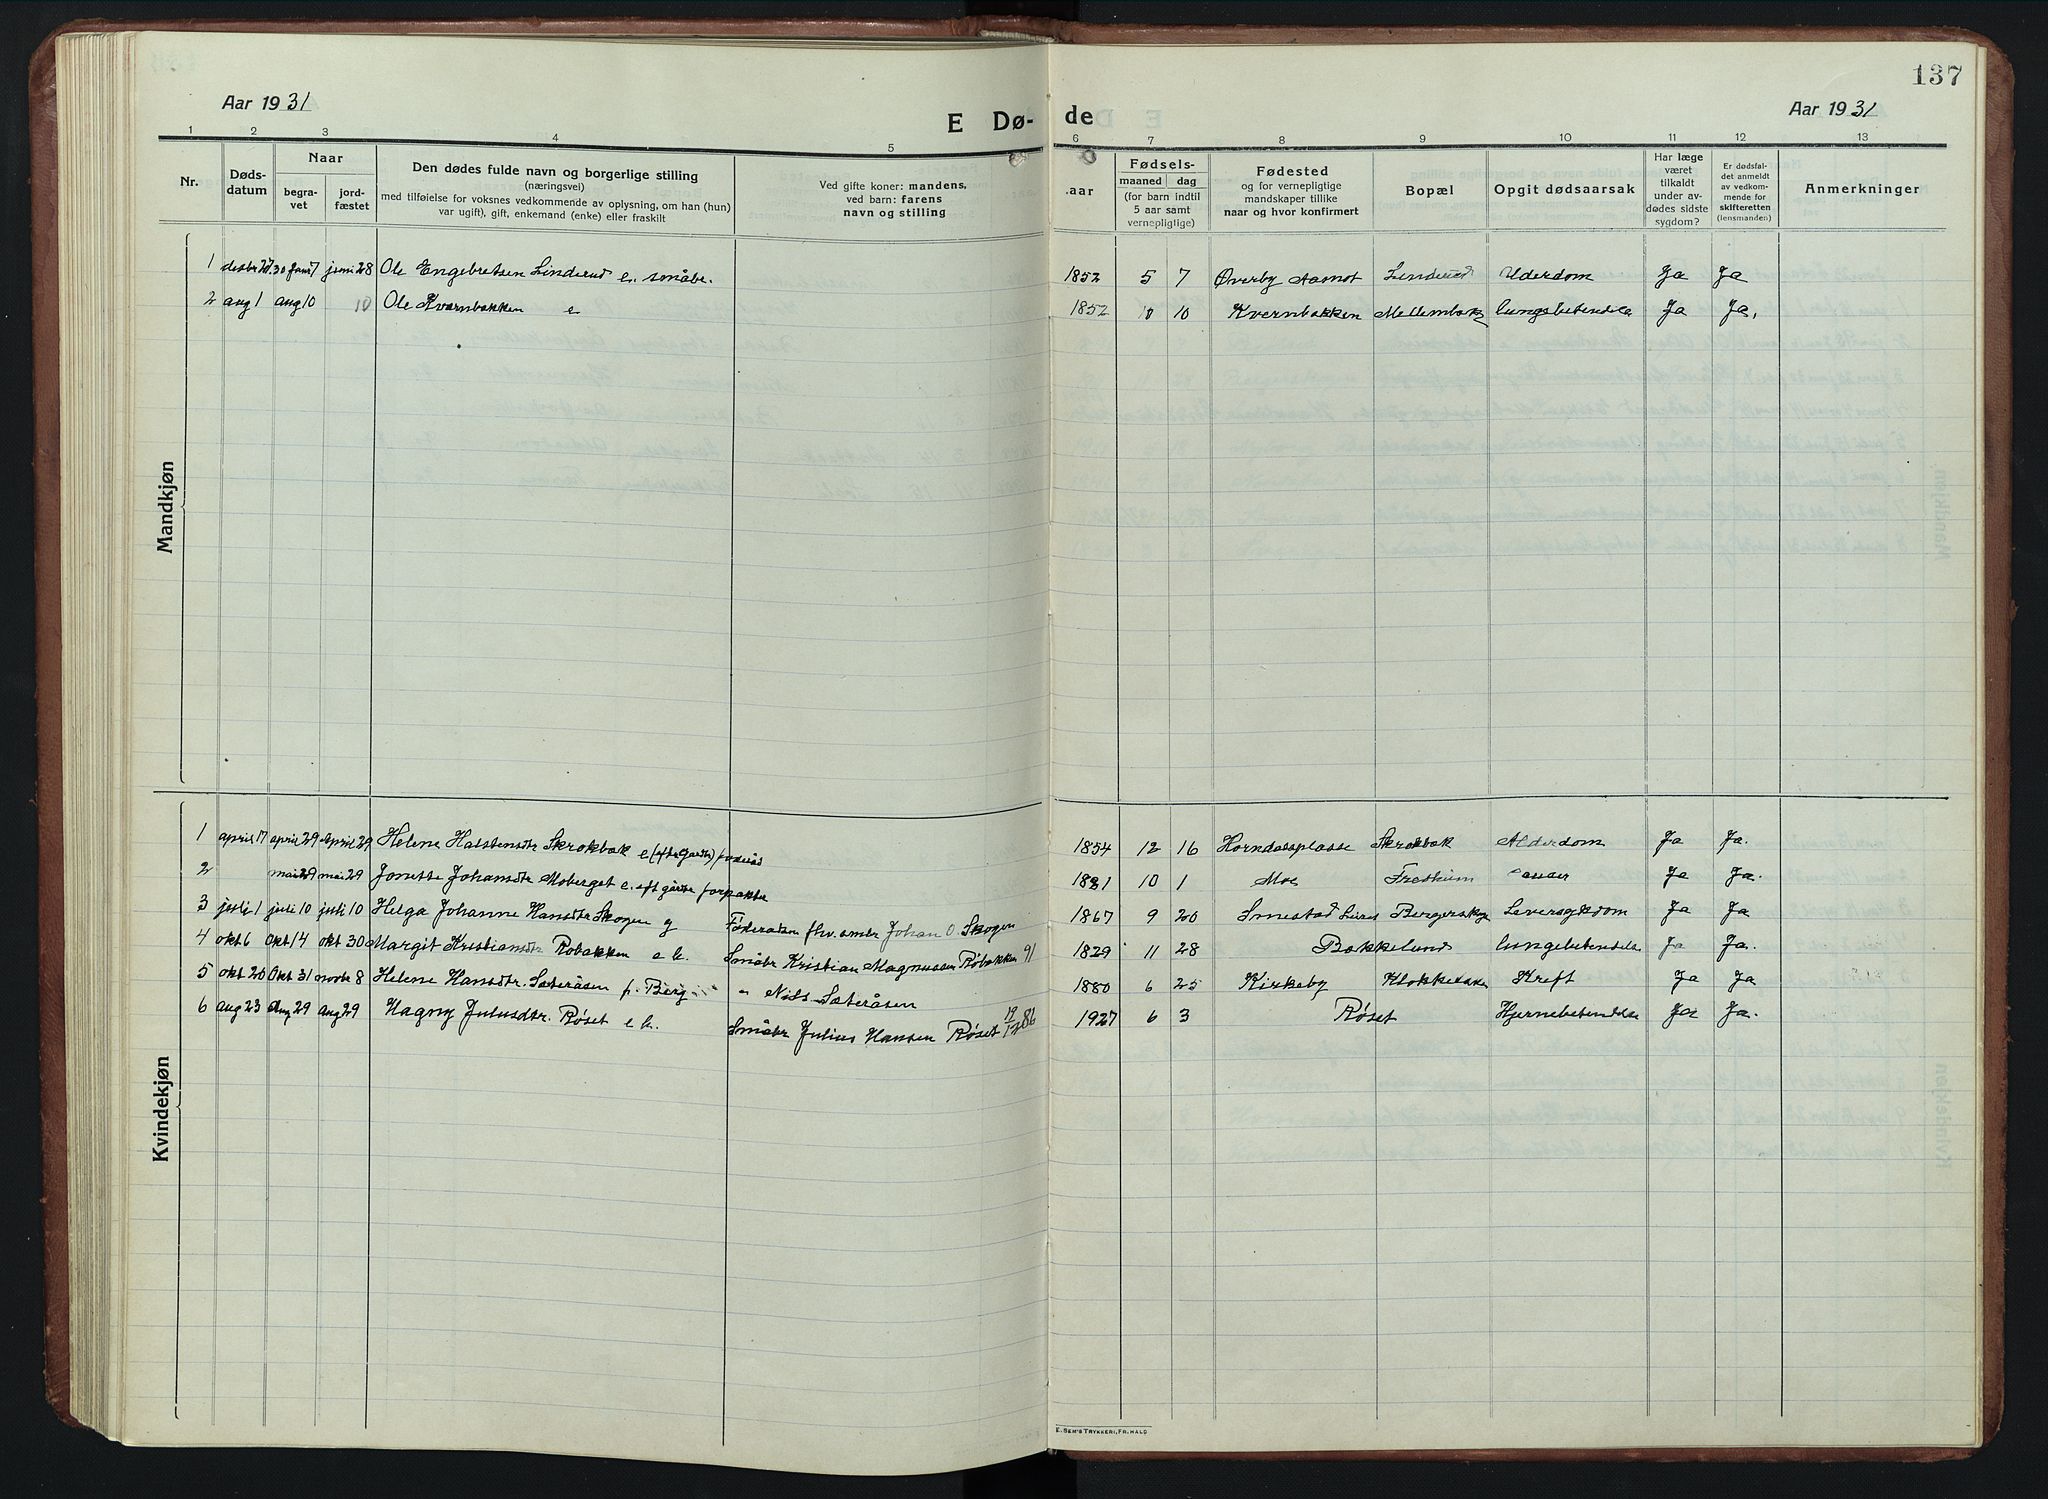 137
Aar 1931
E Dø- de
Aar 1931
1 2 3 4 5 6 7 8 9 10 11 12 13
Nr.
Døds-
datum
Naar
begra-
vet
jord-
fæstet
Den dødes fulde navn og borgerlige stilling
(næringsvei)
med tilføielse for voksnes vedkommende av oplysning, om han (hun)
var ugift), gift, enkemand (enke) eller fraskilt
Ved gifte koner: mandens,
ved barn: farens
navn og stilling
.aar
Fødsels-
maaned dag
(for barn indtil
5 aar samt
vernepligtige)
Fødested
og for vernepligtige
mandskaper tillike
naar og hvor konfirmert
Bopæl
Opgit dødsaarsak
Har læge
været
tilkaldt
under av-
dødes sidste
sygdom?
Er dødsfal-
det anmeldt
av vedkom-
mende for
skifteretten
(lensmanden)
Anmerkninger
Mandkjøn
1 desbr 27 30 Jan 7 juni 28 Ole Engebretsen Linderud e. småbr. 1852 5 7 Øverby Aamot Linderud Alderdom Ja Ja
2 aug 1 aug 10 10 Ole Kværnbakken e 1852 10 10 Kvernbakken Mellembak Ja Ja.
Kvindekjøn
1 april 17 april 29 april 29 Helene Halstensdtr Skrokbæk e 1854 12 16 Horndalsplasse Skrokbæk Alderdom Ja Ja.
2 mai 29 mai 29 Jonette Johansdtr Moberget e. eft gårdbr forpakter 10 1 Moe Ja Ja.
3 juli 1 juli 10 juli 10 Helga Johanne Hansdtr Skogen g Føderådsm fhv. småbr Johan O Skogen 1867 9 20 Smestad Leversykdom Ja Ja
4 okt 6 okt 14 okt 30 Margit Kristiansdtr Robakken e k. Småbr Kristian Magnussen Røbakken 91 11 28 Bakkelund Ja Ja.
5 okt 20 Okt 31 novbr 8 Helene Hansdtr. Sæteråsen f. Berg " Nils Sæteråsen 1880 6 25 Kirkeby Kreft Ja Ja
6 aug 23 Aug 29 aug 29 Hagny Juliusdtr. Røset e k. Småbr Julius Hansen Røset 86 1927 6 3 Røset Hjernebetendelse Ja Ja.
E. SEM'S TRYKKERI, FR.HALD